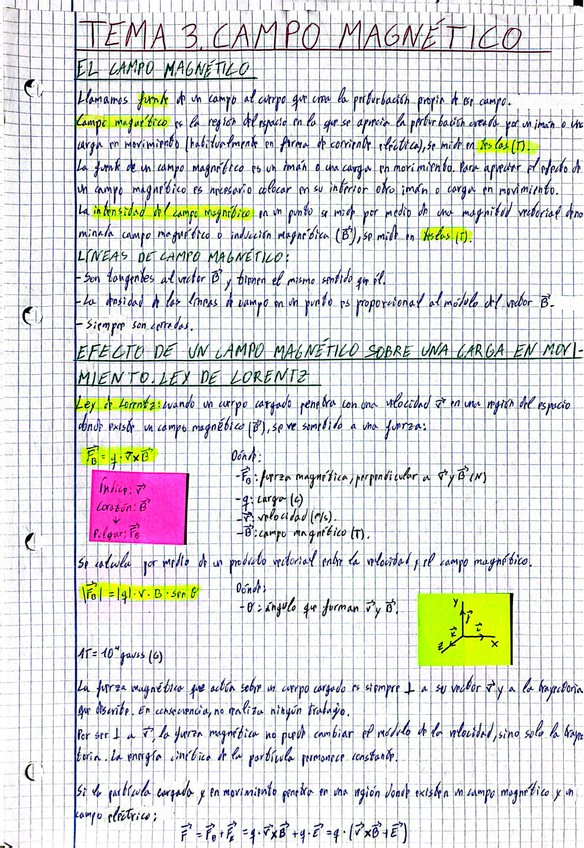 TEMA 3. CAMPO MAGNÉTICO
EL CAMPO MAGNÉTICO
Llamamos fuente de un campo al cuerpo que crea la perturbación propia de ese campo.
Campo magnético es la región del espacio en la que se aprecia la perturbación creada por un imán o una
carga en movimiento (habitualmente en forma de corriente eléctrica), se mide en teslas (T).
La fuente de un campo magnético es un imán o una carga en movimiento. Para apreciar el efecto de
un campo magnético es necesario colocar en su interior otro imán o carga en movimiento.
La intensidad del campo magnético en un punto se mide por medio de una magnitud vectorial deno
minada campo magnético o inducción magnética (B⃗), se mide en teslas (T).
LÍNEAS DE CAMPO MAGNÉTICO:
- Son tangentes al vector B⃗ y tienen el mismo sentido que él.
- La densidad de las líneas de campo en un punto es proporcional al módulo del vector B⃗.
- Siempre son cerradas.
EFECTO DE UN CAMPO MAGNÉTICO SOBRE UNA CARGA EN MOVI-
MIENTO. LEY DE LORENTZ
Ley de Lorentz: cuando un cuerpo cargado penetra con una velocidad v⃗ en una región del espacio
donde existe un campo magnético (B⃗), se ve sometido a una fuerza:
F⃗B = q · v⃗ x B⃗
Dónde:
- F⃗B: fuerza magnética, perpendicular a v⃗ y B⃗ (N)
- q: carga (C)
- v⃗: velocidad (m/s).
- B⃗: campo magnético (T).
Índice: v⃗
Corazón: B⃗
↓
Pulgar: F⃗B
Se calcula por medio de un producto vectorial entre la velocidad y el campo magnético.
|F⃗B| = |q| · v · B · sen θ
Dónde:
- θ: ángulo que forman v⃗ y B⃗.
Y
j⃗
k⃗
i⃗
Z
X
1T = 10⁴ gauss (G)
La fuerza magnética que actúa sobre un cuerpo cargado es siempre ⊥ a su vector v⃗ y a la trayectoria
que describe. En consecuencia, no realiza ningún trabajo.
Por ser ⊥ a v⃗, la fuerza magnética no puede cambiar el módulo de la velocidad, sino solo la trayec
toria. La energía cinética de la partícula permanece constante.
Si la partícula cargada y en movimiento penetra en una región donde existen un campo magnético y un
campo eléctrico:
F⃗ = F⃗B + F⃗E = q · v⃗ x B⃗ + q · E⃗ = q · (v⃗ x B⃗ + E⃗)